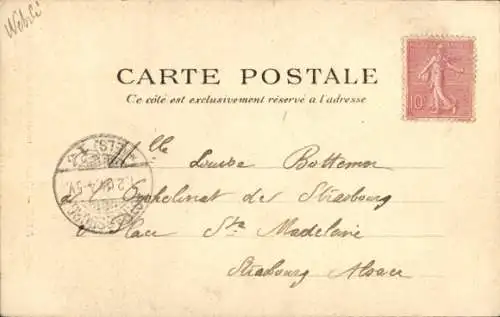 CARTE POSTALE
Ce côté est exclusivement réservé a l'adresse
10
Mlle Louise Bottemer
à l'Orphelinat de Strasbourg
Place Ste Madeleine
Strasbourg Alsace